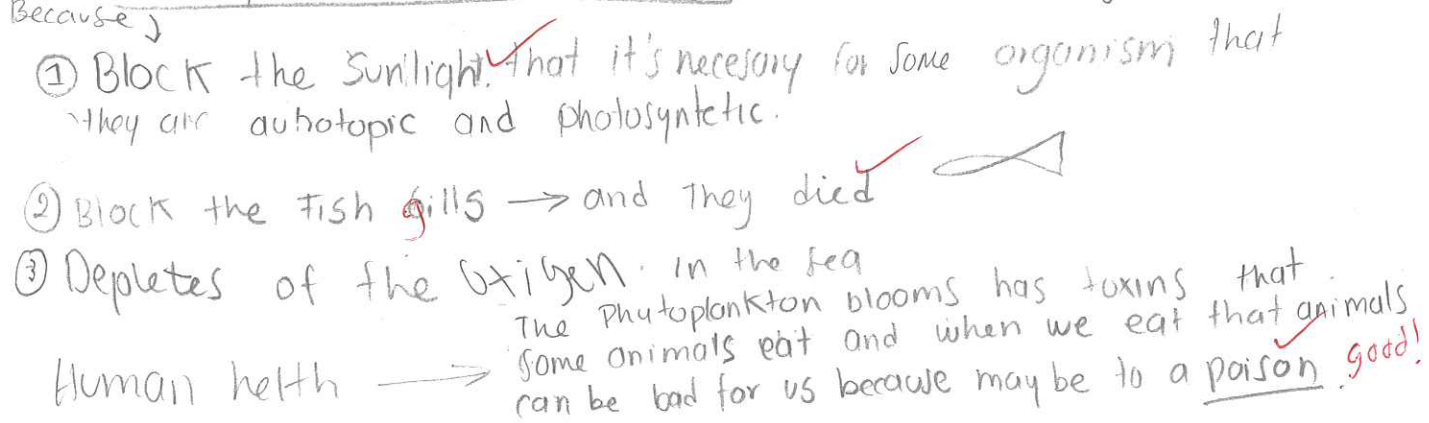 Because,
① Block the Sunlight. that it's necesary for Some organism that
they are autotopic and photosyntetic.
② Block the Fish gills → and They died
③ Depletes of the Oxigen. in the sea
Human helth → The Phytoplankton blooms has toxins that
Some animals eat and when we eat that animals
can be bad for us because may be to a poison. good!